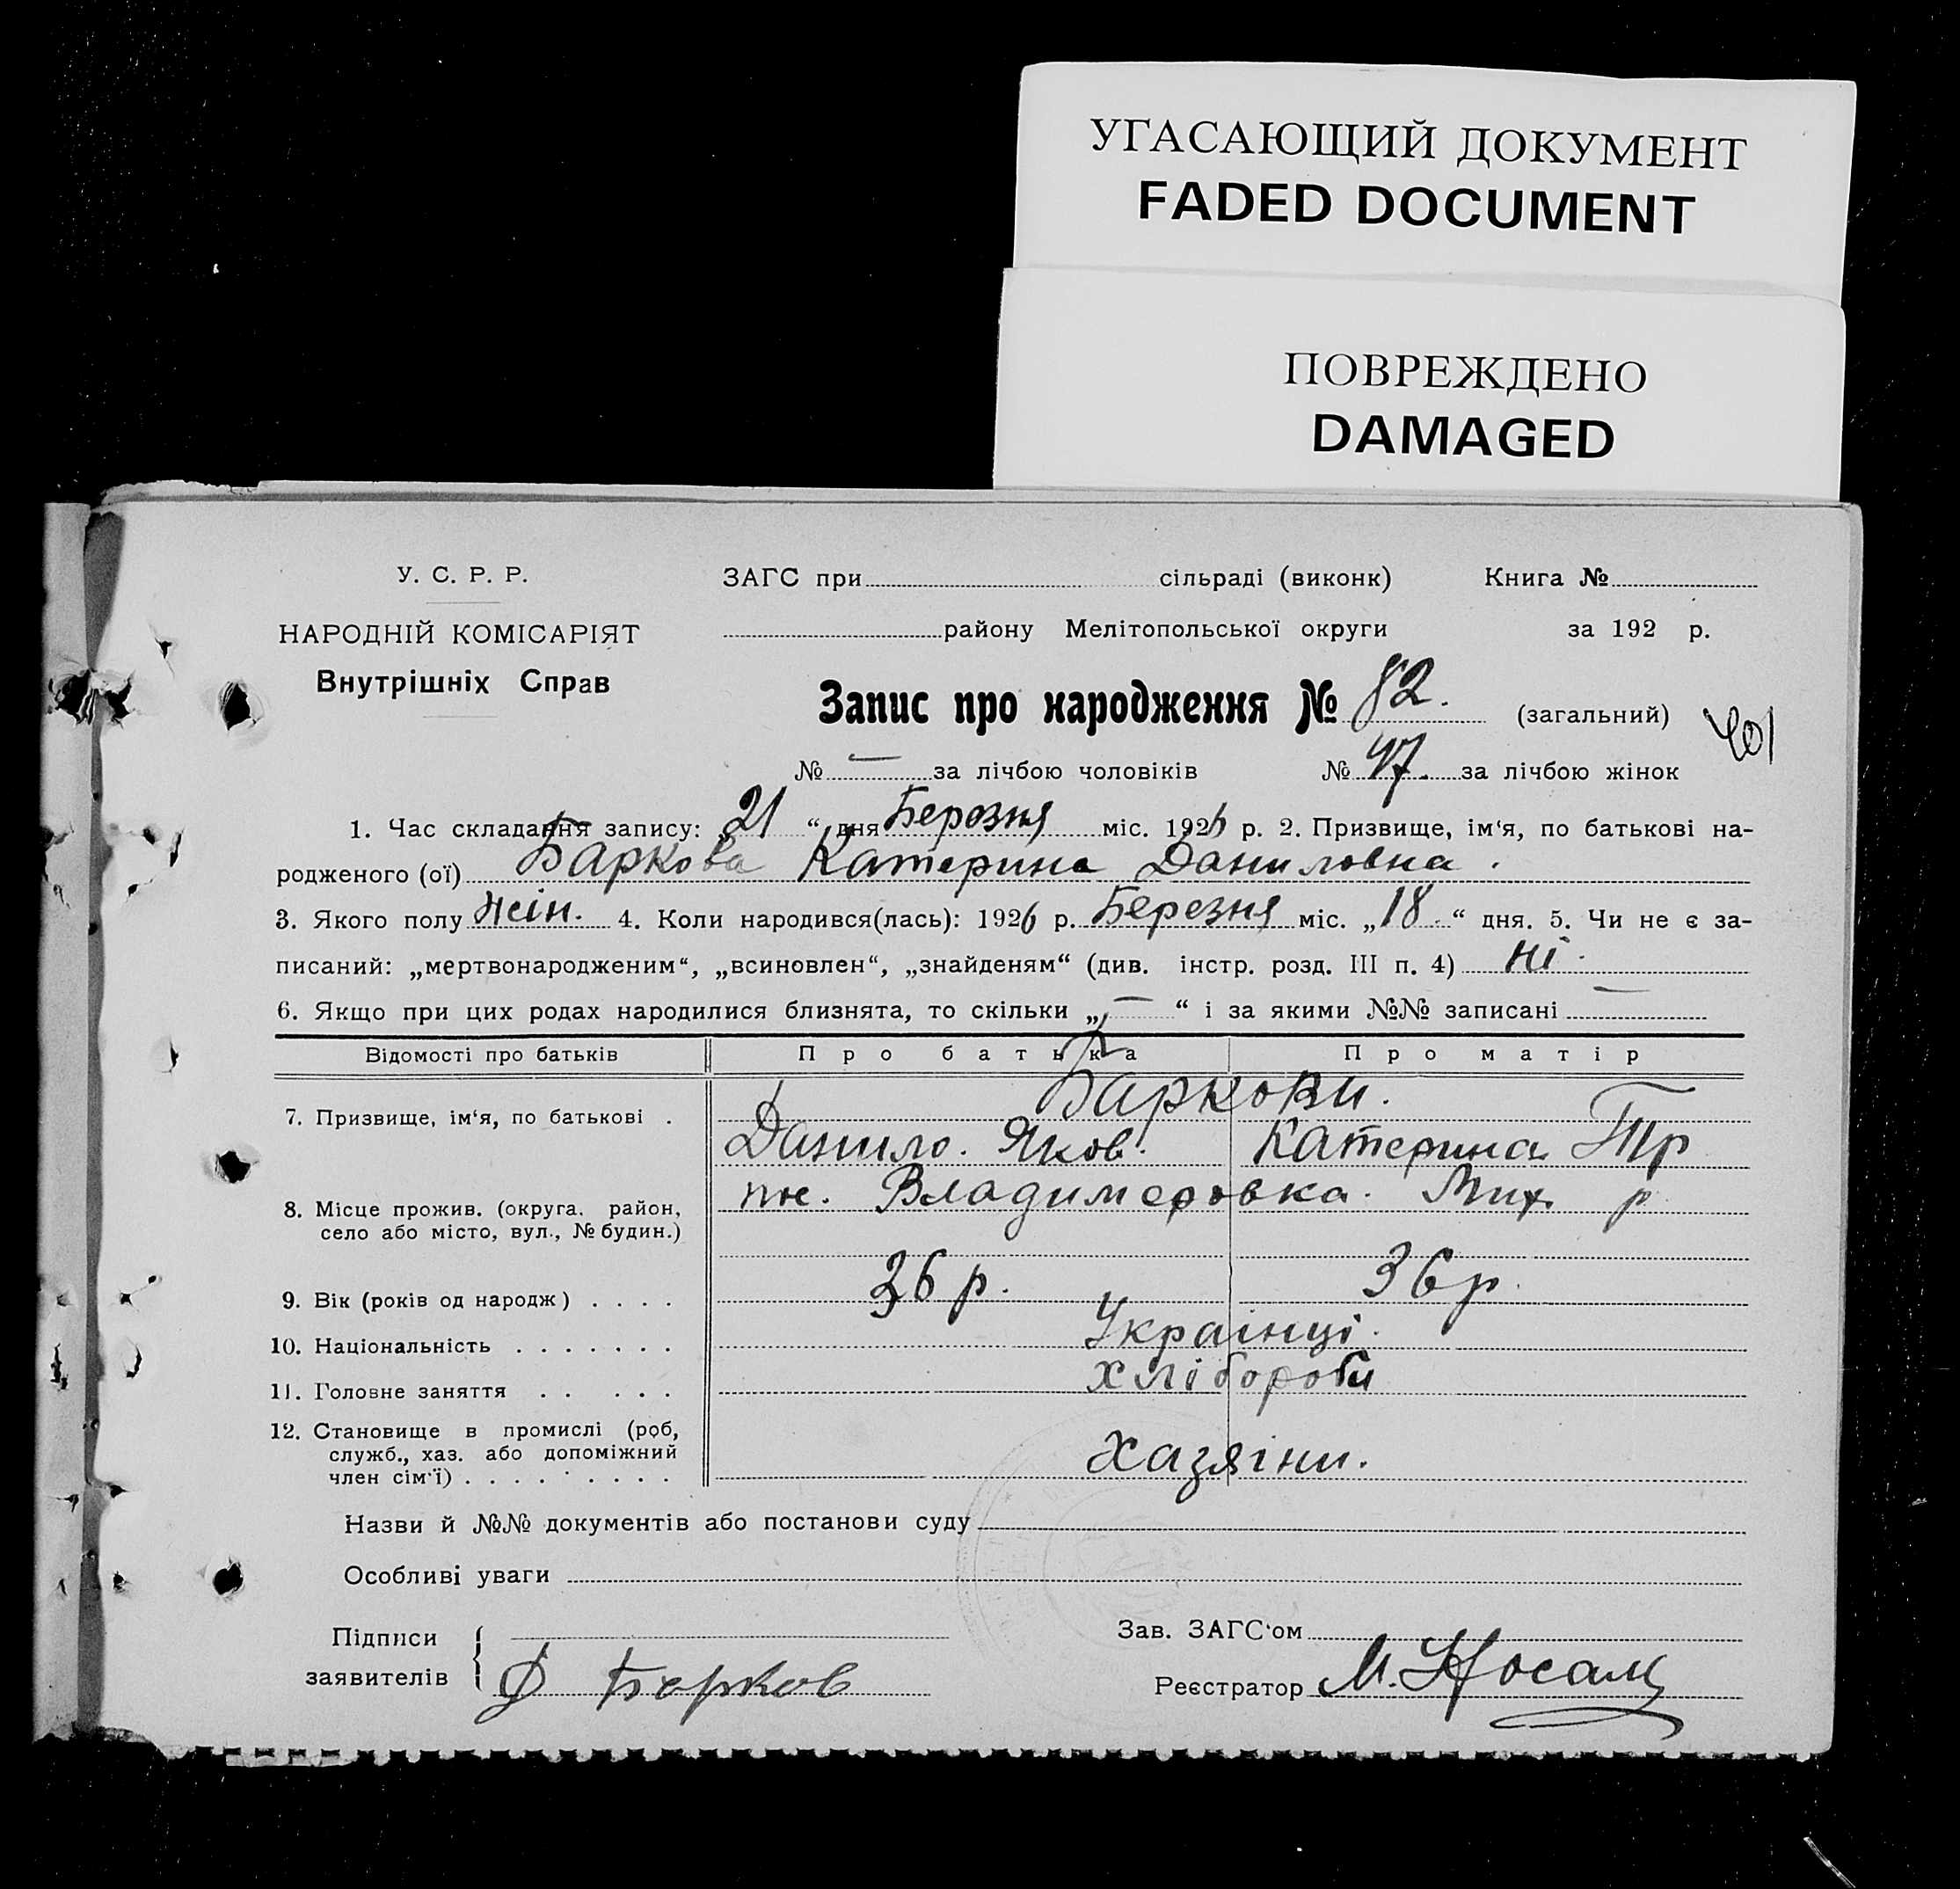 УГАСАЮЩИЙ ДОКУМЕНТ
FADED DOCUMENT
ПОВРЕЖДЕНО
DAMAGED
У. С. Р. Р.
НАРОДНІЙ КОМІСАРІЯТ
Внутрішніх Справ
ЗАГС при сільраді (виконк) Книга №
району Мелітопольської округи за 192 р.
Запис про народження № 82. (загальний)
401
№ — за лічбою чоловіків № 47. за лічбою жінок
1. Час складання запису: „21“ дня Березня міс. 1926 р. 2. Призвище, ім‘я, по батькові на-
родженого (ої) Баркова Катерина Даниловна.
3. Якого полу жін. 4. Коли народився(лась): 1926 р. Березня міс. „18“ дня. 5. Чи не є за-
писаний: „мертвонародженим“, „всиновлен“, „знайденям“ (див. інстр. розд. III п. 4) ні.
6. Якщо при цих родах народилися близнята, то скільки „—“ і за якими №№ записані —
Відомості про батьків Про батька Про матір
7. Призвище, ім‘я, по батькові . Баркови.
Данило. Яков. Катерина Тр
8. Місце прожив. (округа, район, село або місто, вул., № будин.) Владимеровка. Мих р
9. Вік (років од народж) . . . . 36 р. 36 р.
10. Національність . . . . . . . Українці.
11. Головне заняття . . . . . . Хлібороби
12. Становище в промислі (роб, служб., хаз. або допоміжний член сім‘ї) . . . . . . . . . Хазяїни.
Назви й №№ документів або постанови суду
Особливі уваги
Підписи заявителів { Д Барков
Зав. ЗАГС‘ом
Реєстратор М. Носал